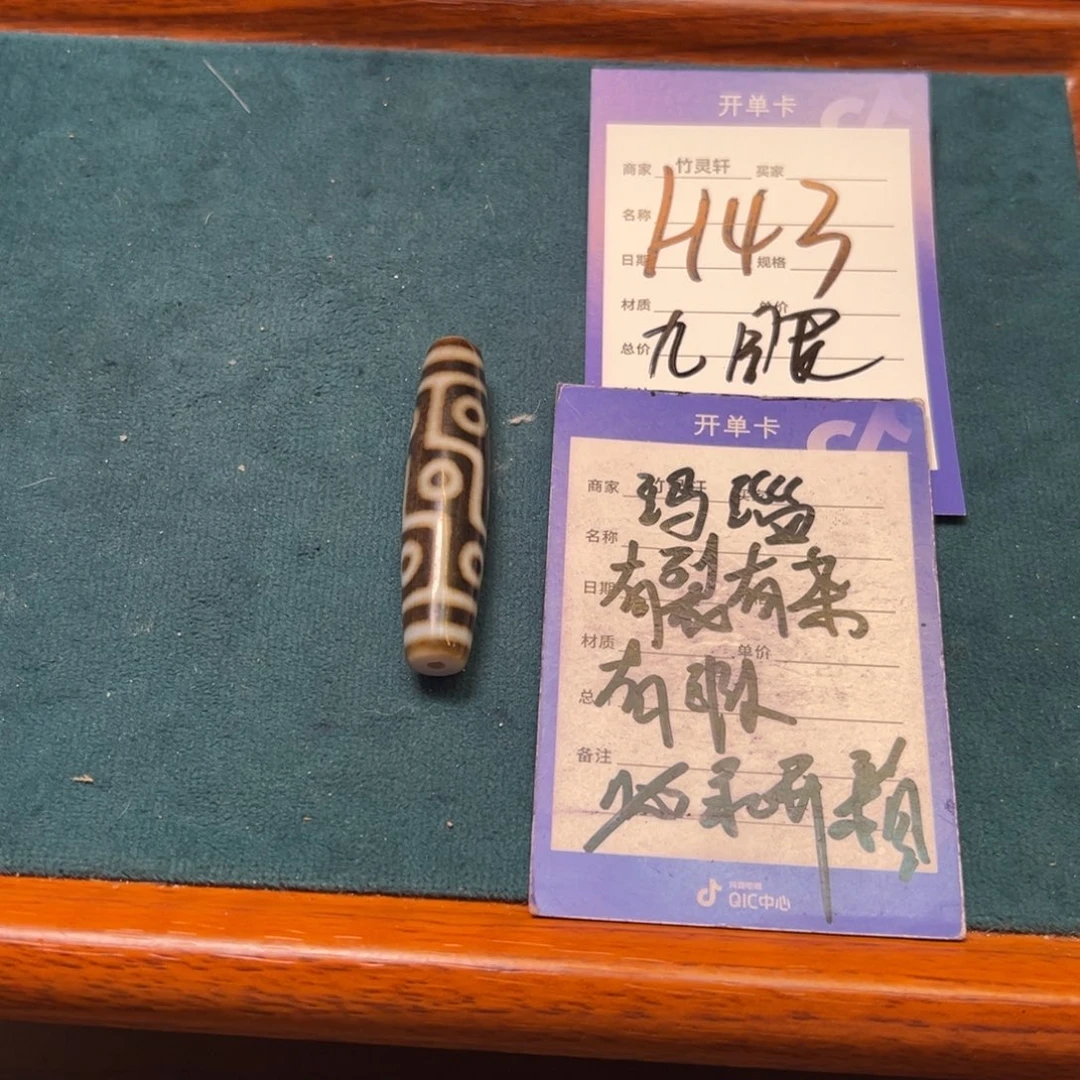 开单卡
商家 竹灵轩 买家
名称
H43
日期 规格
材质 单价
总价
九眼
开单卡
商家 竹灵轩
玛瑙
名称
有裂有杂
日期
材质 单价
总
有瑕
备注
抖音电商
QIC中心